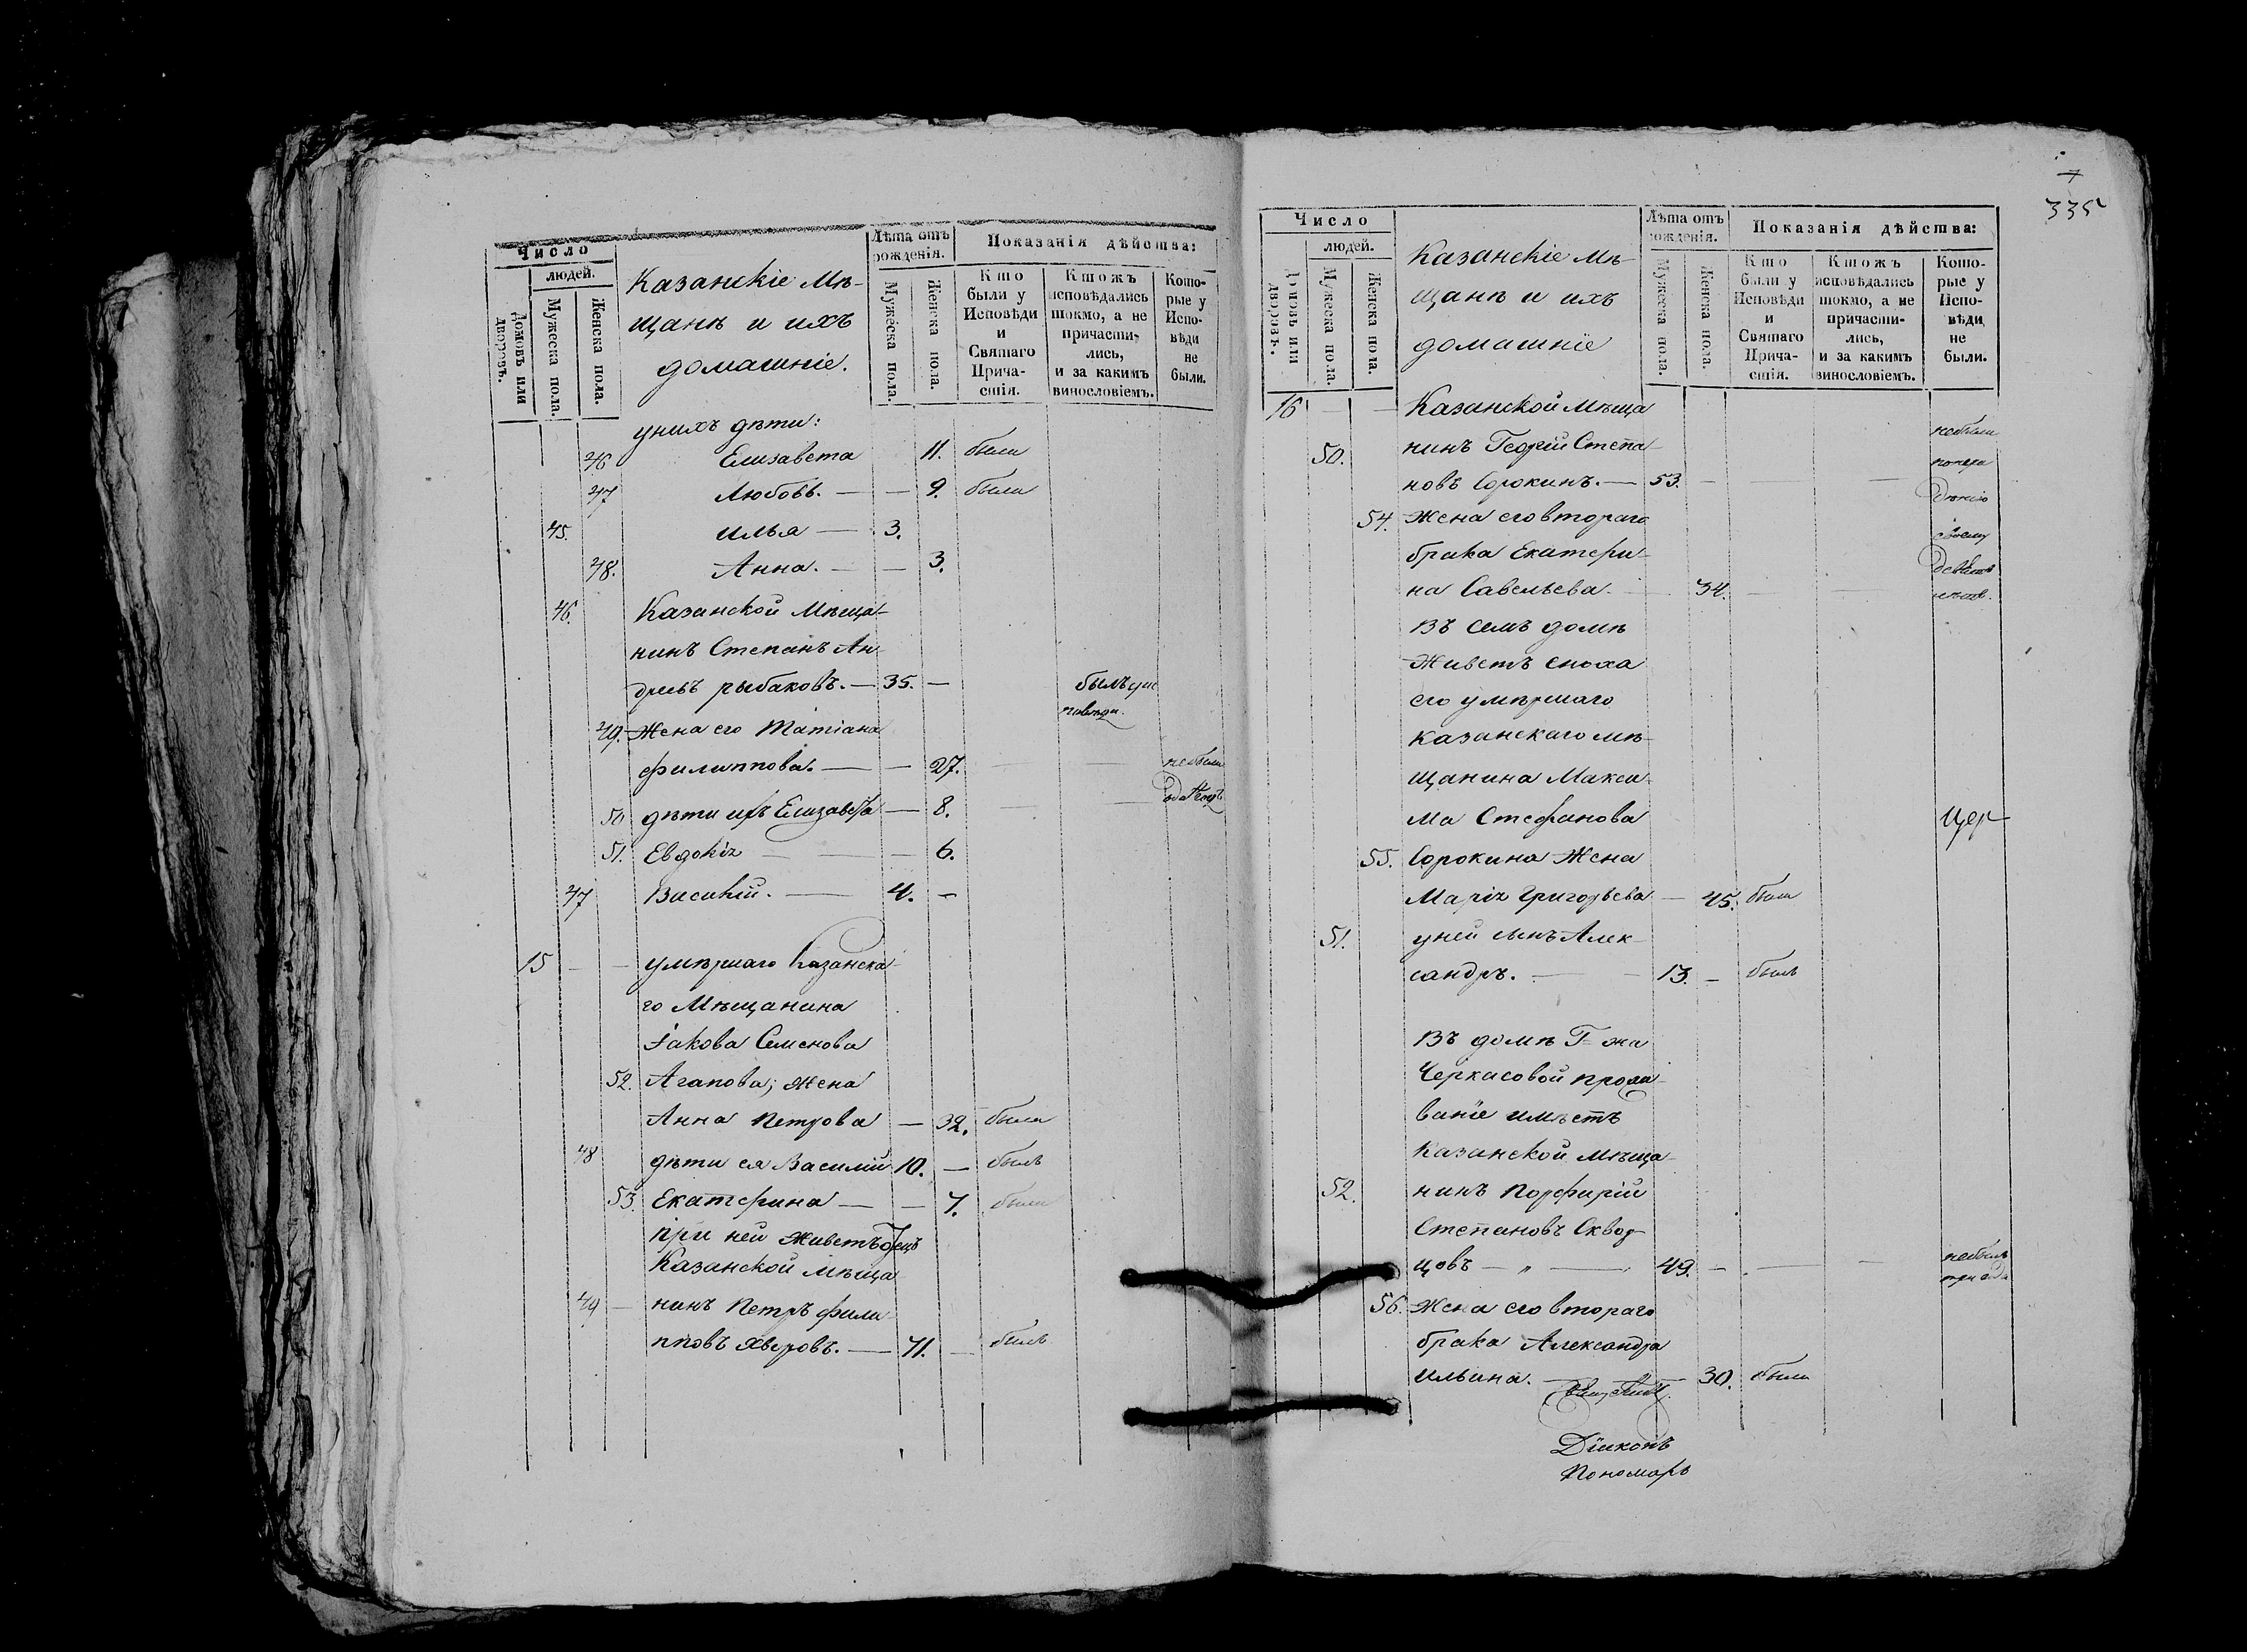 Число
людей.
Домовъ или дворовъ.
Мужеска пола.
Женска пола.
Казанскіе Мѣ-
щанѣ и ихъ
домашніе.
Лѣта отъ рожденія.
Мужеска пола.
Женска пола.
Показанія дѣйства:
Кто были у Исповѣди и Святаго Прича-стія.
Ктожъ исповѣдались токмо, а не причасти-лись, и за какимъ винословіемъ.
Кото-рые у Испо-вѣди не были.
унихъ дѣти:
46 Елизавета 11. была
47 Любовь. — — 9. была
45. илья — 3.
48. Анна. — — 3.
46. Казанской Мѣща-
нинъ Степанъ Ан-
дреевъ рыбаковъ. — 35. — былъ у ис
повѣди.
49. Жена его Татіана
филиппова. — — 27. — — не была
50 дѣти ихъ Елизавета — 8. — —
51. Евдокія — — — 6.
47 Василій. — 4. —
15 — — умѣршаго Казанска-
го Мѣщанина
Іакова Семенова
52. Агапова; жена
Анна Петрова — 32. была
48 дѣти ея Василій 10. — былъ
53. Екатерина — — 7. была
при ней живетъ отецъ
Казанской мѣща
49 — нинъ Петръ фили-
пповъ Хверовъ. — 71. — былъ
335
Число
людей.
Домовъ или дворовъ.
Мужеска пола.
Женска пола.
Казанскіе Мѣ-
щанѣ и ихъ
домашніе
Лѣта отъ рожденія.
Мужеска пола.
Женска пола.
Показанія дѣйства:
Кто были у Исповѣди и Святаго Прича-стія.
Ктожъ исповѣдались токмо, а не причасти-лись, и за какимъ винословіемъ.
Кото-рые у Испо-вѣди не были.
16 — — Казанской Мѣща
50. нинъ Георгій Степа-
новъ Сорокинъ. — 53. — —
54. Жена его втораго
брака Екатери-
на Савельева. — 34. — —
не были
по нера
дѣнію
своему
лѣтъ.
Въ семъ домѣ
Живетъ сноха
его умѣршаго
казанскаго мѣ-
щанина Макси-
ма Стефанова
Цер
55. Сорокина Жена
Марія Григорьева — 45. была
51. у ней сынъ Алек-
сандръ. — — 13. — былъ
Въ домѣ Г-жи
Черкасовой прожи-
ваніе имѣетъ
Казанской мѣща-
52. нинъ Порфирій
Степановъ Сквор
цовъ — „ — 49. — — — не былъ
три года
56. Жена его втораго
брака Александра
ильина. — — 30. была
Діаконъ
Пономарь